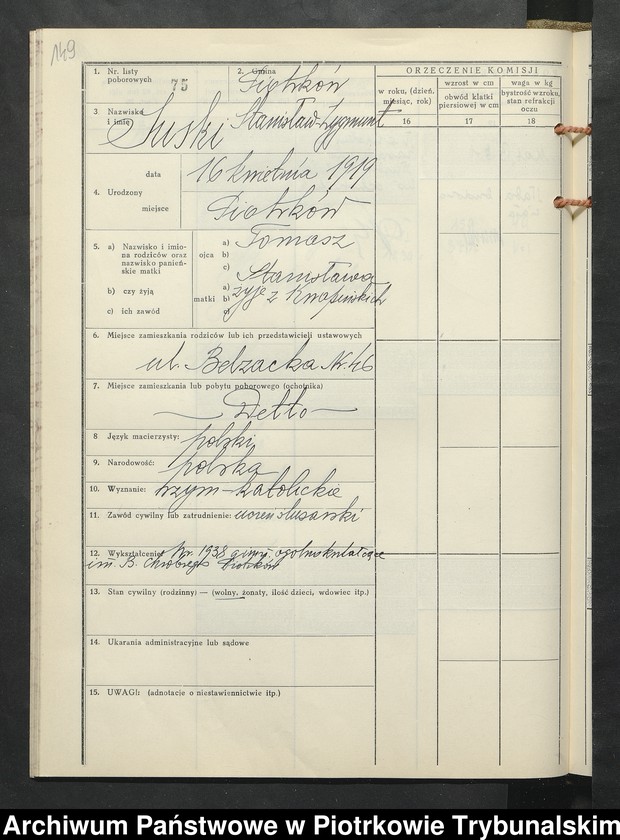 149
1. Nr. listy poborowych 75
2. Gmina Piotrków
ORZECZENIE KOMISJI
w roku, (dzień, miesiąc, rok)
wzrost w cm
obwód klatki piersiowej w cm
waga w kg
bystrość wzroku, stan refrakcji oczu
16 17 18
3 Nazwisko i imię Suski Stanisław-Zygmunt
4. Urodzony
data 16 kwietnia 1919
miejsce Piotrków
5. a) Nazwisko i imiona rodziców oraz nazwisko panieńskie matki
b) czy żyją
c) ich zawód
ojca a) Tomasz
b)
c)
matki a) Stanisława
b) żyje z Knapińskich
c)
6. Miejsce zamieszkania rodziców lub ich przedstawicieli ustawowych
ul. Belzacka Nr. 46
7. Miejsce zamieszkania lub pobytu poborowego (ochotnika)
— Detto —
8 Język macierzysty: polski
9. Narodowość: polska
10. Wyznanie: rzym-katolickie
11. Zawód cywilny lub zatrudnienie: uczeń slusarski
12. Wykształcenie: 1938 gimn. ogólnokształcące
im. B. Chrobrego Piotrków
13. Stan cywilny (rodzinny) — (wolny, żonaty, ilość dzieci, wdowiec itp.)
14. Ukarania administracyjne lub sądowe
15. UWAGI: (adnotacje o niestawiennictwie itp.)
Archiwum Państwowe w Piotrkowie Trybunalskim